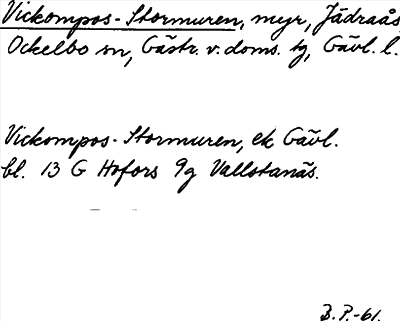 Vickompos-Stormuren, myr, Jädraås,
Ockelbo sn, Gästr. v. doms. tg, Gävl. l.
Vickompos-Stormuren, ek Gävl.
bl. 13 G Hofors 9g Vallstanäs.
B.P.-61.